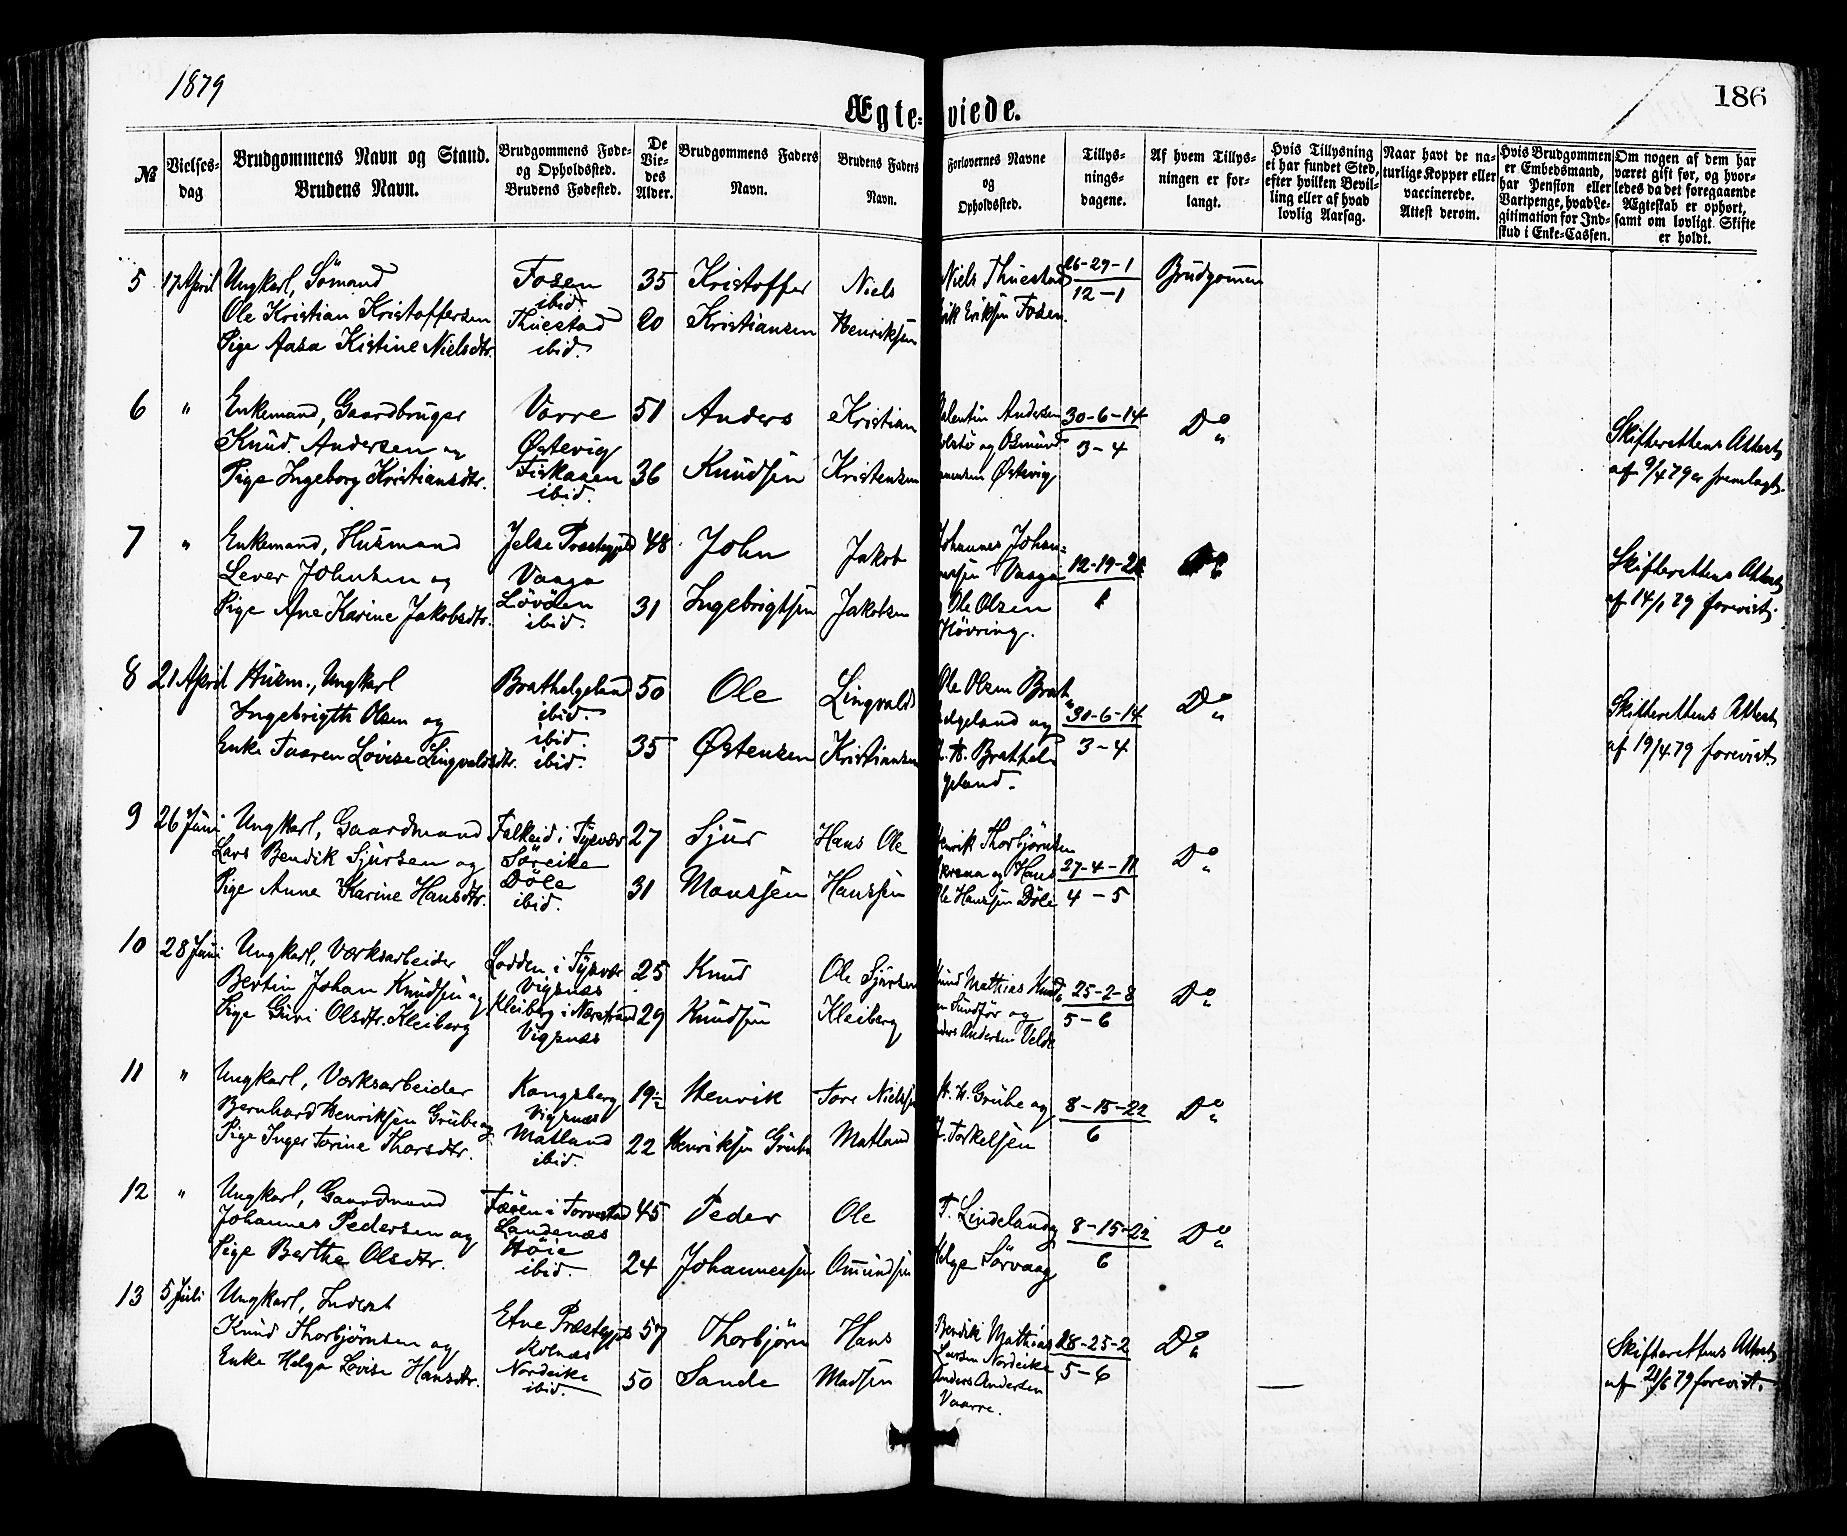 1879
186
Ægte-viede.
№
Vielses-
dag
Brudgommens Navn og Stand.
Brudens Navn.
Brudgommens Føde-
og Opholdssted.
Brudens Fødested.
De
Vie-
des
Alder.
Brudgommens Faders
Navn.
Brudens Faders
Navn.
Forlovernes Navne
og
Opholdssted.
Tillys-
nings-
dagene.
Af hvem Tillys-
ningen er for-
langt.
Hvis Tillysning
ei har fundet Sted,
efter hvilken Bevil-
ling eller af hvad
lovlig Aarsag.
Naar havt de na-
turlige Kopper eller
vaccinerede.
Attest derom.
Hvis Brudgommen
er Embedsmand,
har Pension eller
Vartpenge, hvad Le-
gitimation for Ind-
skud i Enke-Cassen.
Om nogen af dem har
været gift før, og hvor-
ledes da det foregaaende
Ægteskab er ophørt,
samt om lovligt Skifte
er holdt.
5 17 April Ungkarl, Sömand
Ole Kristian Kristoffersen
Pige Aasa Kistine Nielsdtr.
Fosen
ibid.
Thuestad
ibid.
35
20
Kristoffer
Kristiansen
Niels
Henriksen
Niels Thuestad
Eriksen Fosen.
26-29-1
12-1
Brudgommen
6 " Enkemand, Gaardbruger
Knud Andersen og
Pige Ingeborg Kristiansdtr.
Vorre
Østevig
Fiskaaen
ibid.
51
36
Anders
Knudsen
Kristian
Kristensen
Andersen
og Osmund
Østevig
30-6-14
3-4
Do "
Skifterettens Attest
af 9/4 79 er fremlagt.
7 " Enkemand, Husmand
Lever Johnsen og
Pige Ane Karine Jakobsdtr.
Jelse Præstegjeld
Vaaga
Lövöen
ibid.
48
31
John
Ingebrigtsen
Jakob
Jakobsen
Johannes Johan-
Vaaga
Ole Olsen
Hövring.
12-19-26
1
Do "
Skifterettens Attest
af 14/1 79 forevist.
8 21 April Husm., Ungkarl
Ingebrigth Olsen og
Enke Taaren Lovise Lingvaldsdtr.
Brathelgeland
ibid.
ibid.
ibid.
50
35
Ole
Østensen
Lingvald
Kristiansen
Ole Olsen Brat-
helgeland og
Brathel-
geland.
30-6-14
3-4
Do "
Skifterettens Attest
af 19/4 79 forevist.
9 26 Juni Ungkarl, Gaardmand
Lars Bendik Sjursen og
Pige Anne Karine Hansdtr.
Falkeid i Tysvær
Søreike
Döle
ibid.
27
31
Sjur
Monssen
Hans Ole
Hanssen
Henrik Thorbjørnsen
og Hans
Ole Hanssen Döle
27-4-11
4-5
Do "
10 28 Juni Ungkarl, Værksarbeider
Bertin Johan Knudsen og
Pige Guri Olsdtr. Kleiberg
Lodden i Tysvær
Vigsnæs
Kleiberg i Nærstrand
Vigsnæs
25
29
Knud
Knudsen
Ole Sjursen
Kleiberg
Knud Mathias Knud-
sen Sundför og
Anders Andersen Velde
25-2-8
5-6
Do "
11 " Ungkarl, Værksarbeider
Bernhard Henriksen Grube og
Pige Inger Torine Thorsdtr.
Kongsberg
Vigsnæs
Matland
ibid.
19½
22
Henrik
Henriksen Grube
Tore Nielssen
Matland
H. H. Grube og
T. Torkelsen
8-15-22
6
Do "
12 " Ungkarl, Gaardmand
Johannes Pedersen og
Pige Berthe Olsdtr.
Fæöen i Torvestad
Landenæs
Höie
ibid.
45
24
Peder
Johannessen
Ole
Omundsen
T. Lindeland og
Helge Sörvaag
8-15-22
6
Do "
13 5 Juli Ungkarl, Inderst
Knud Thorbjörnsen og
Enke Helga Lovise Hansdtr.
Etne Præstegjeld
Kolnæs
Nordeike
ibid.
57
50
Thorbjörn
Sande
Hans
Madsen
Bendik Mathias
Larsen Nordeike
Anders Andersen
Vaarre.
18-25-2
5-6
Do "
Skifterettens Attest
af 21/6 79 forevist.